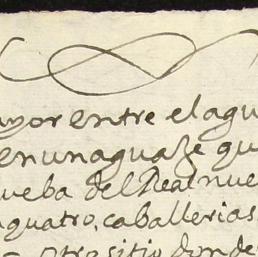 ayor entre el agu
en un aguaje qu
ueba del Real nue
quatro, caballerias
otro sitio donde